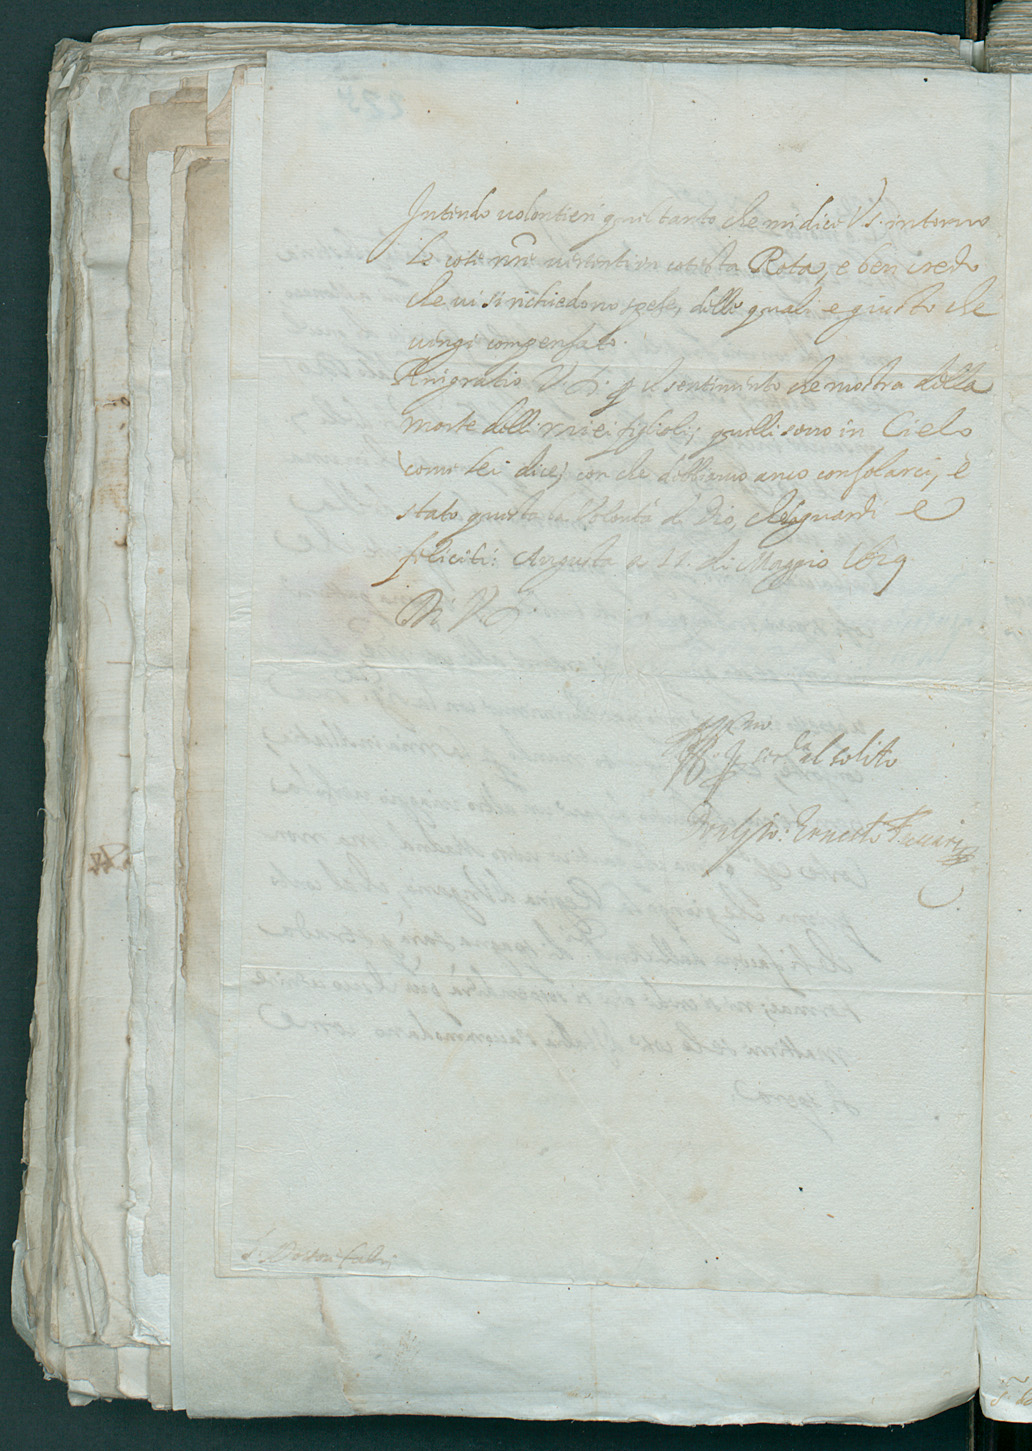 Intendo uolontieri quel tanto che mi dice V.S. intorno
le cose nr̃e uertenti in cotesta Rota, e ben credo
che ui si richiedono spese, delle quali e giusto che
uenga compensato.
Ringratio V.S. ꝑ il sentimento che mostra della
morte delli miei figlioli; quelli sono in Cielo
come lei dice, con che debbiamo anco consolarci, è
stato questa la Volontà di Dio, che la guardi e
feliciti: Augusta a 11. di Maggio 1629
Di V.S.
al solito
Ernesto Fuccari
S. Dottor